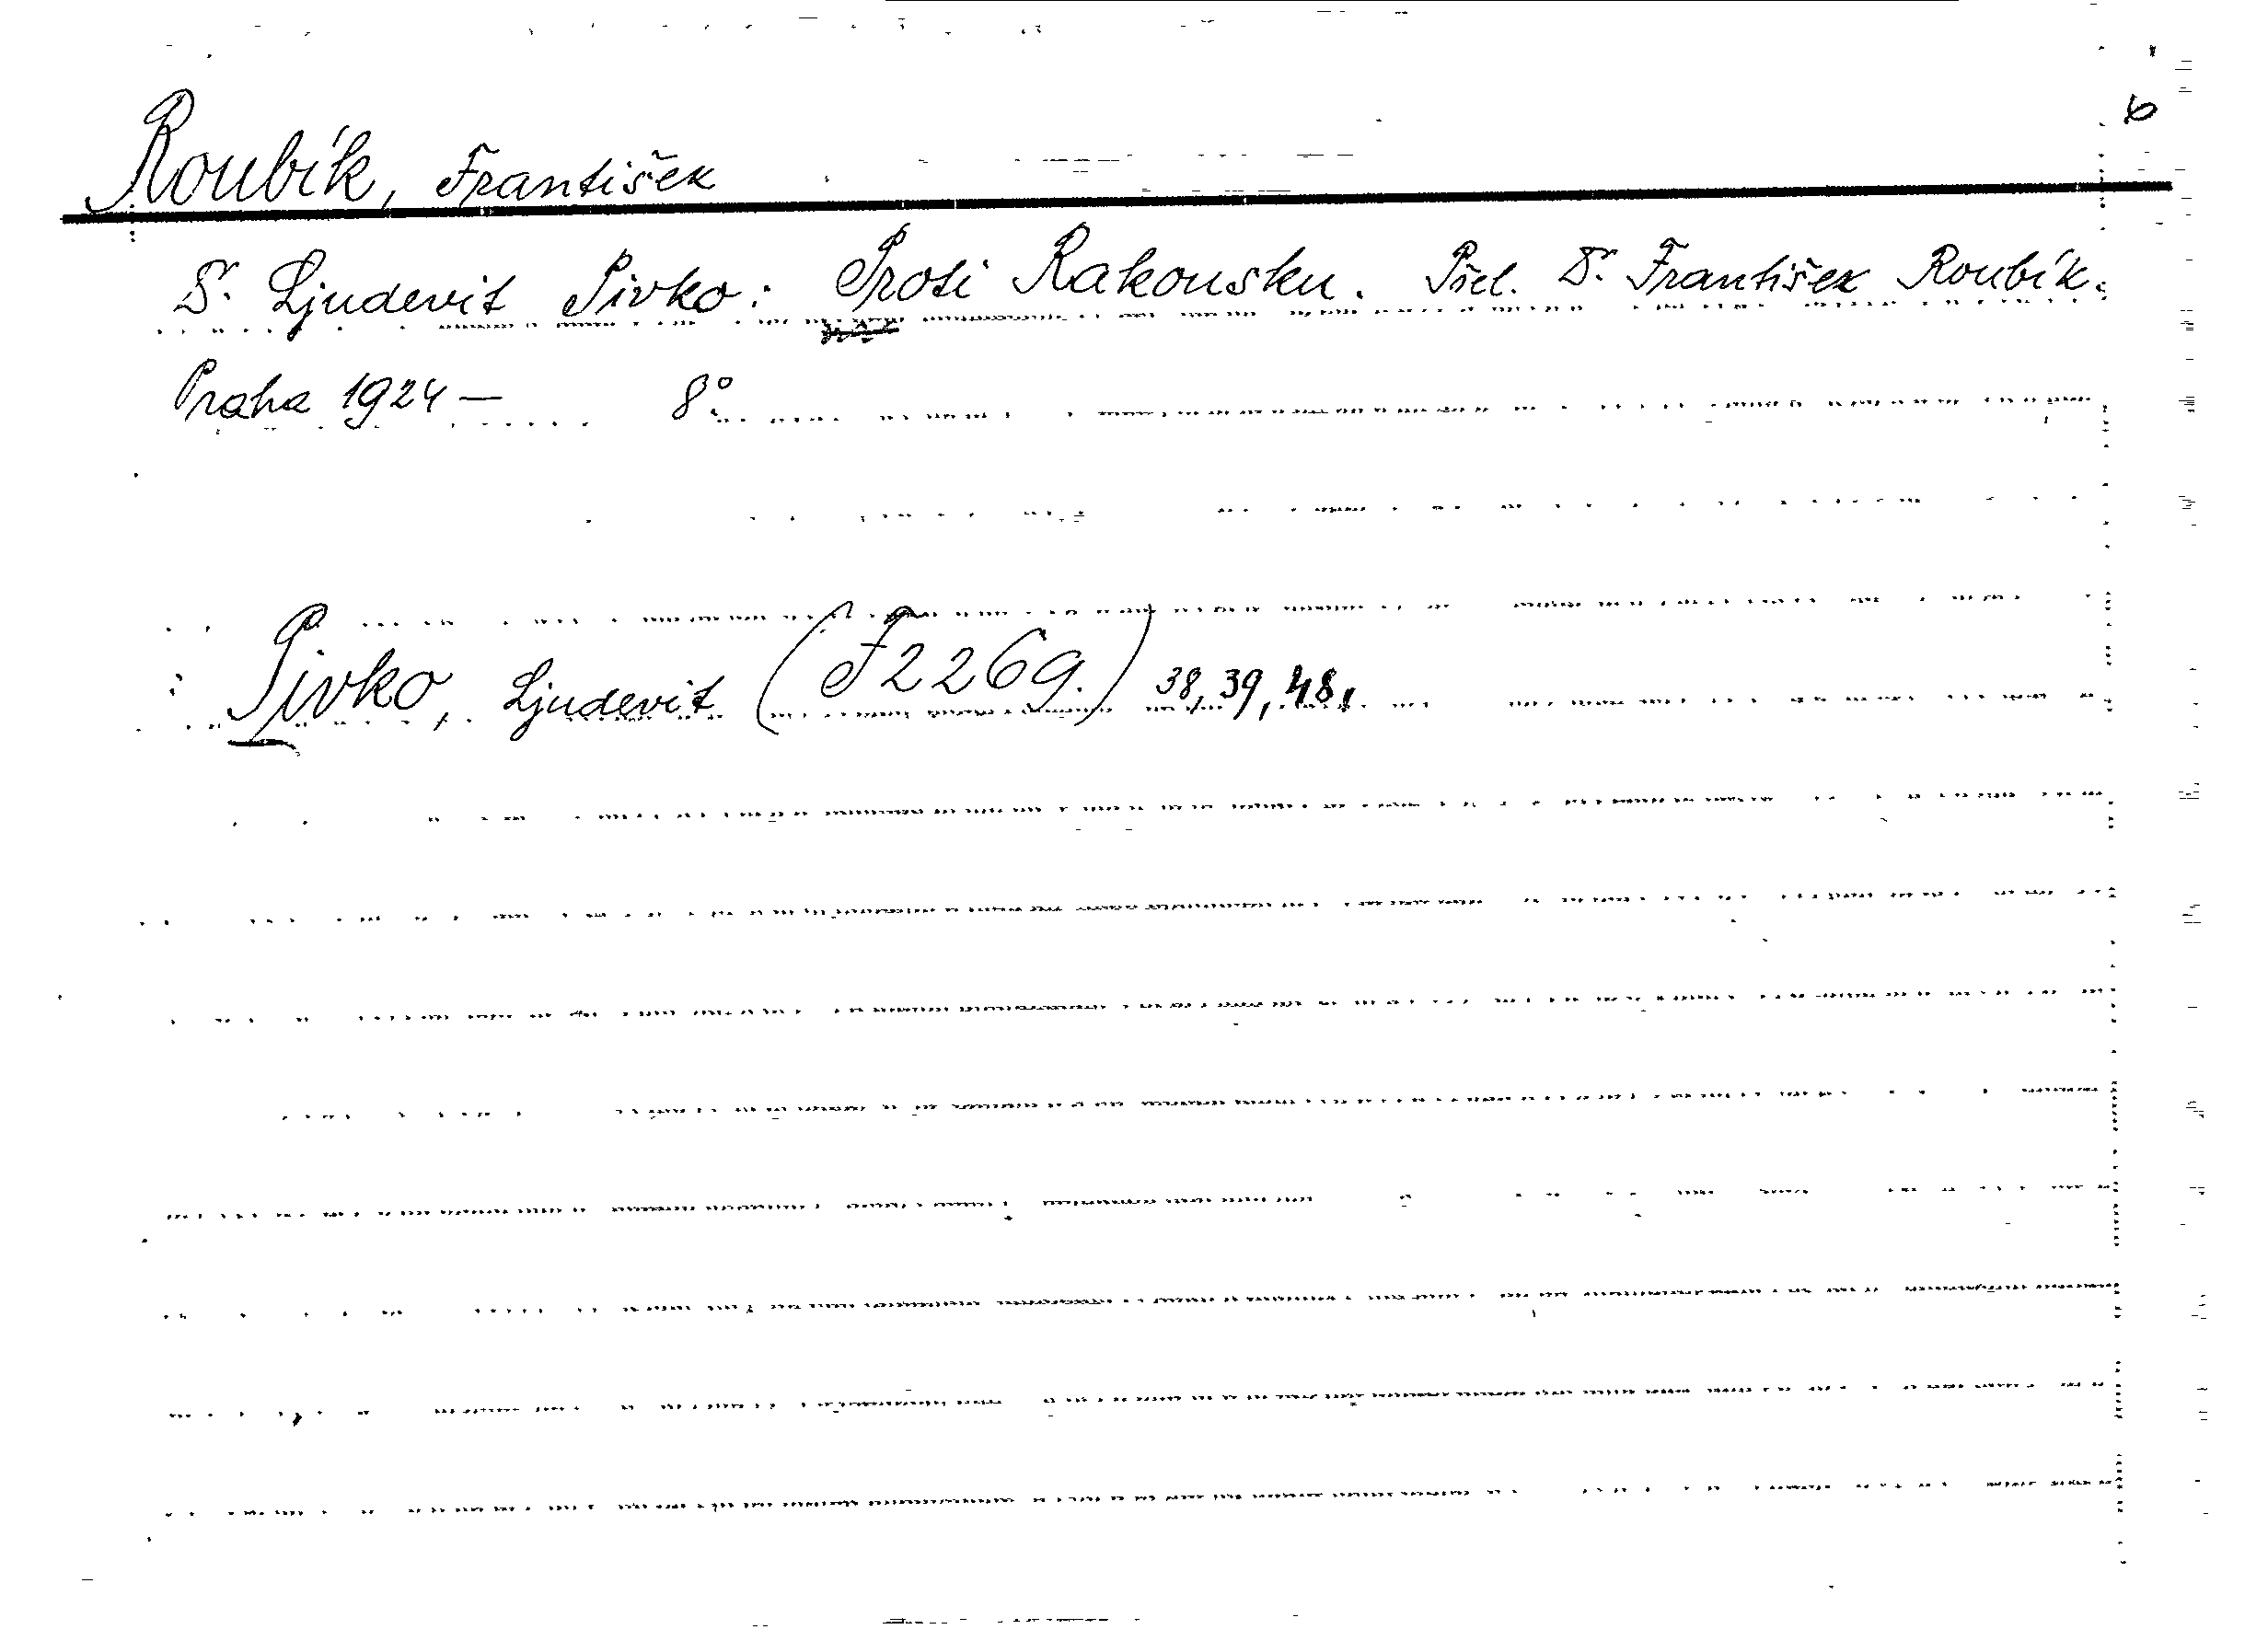 6
Roubík, František
Dr. Ljudevit Pivko: Proti Rakousku. Přel. Dr. František Roubík.
Praha 1924 — 8°.
Pivko, Ljudevit (F 2269.) 38, 39, 48,